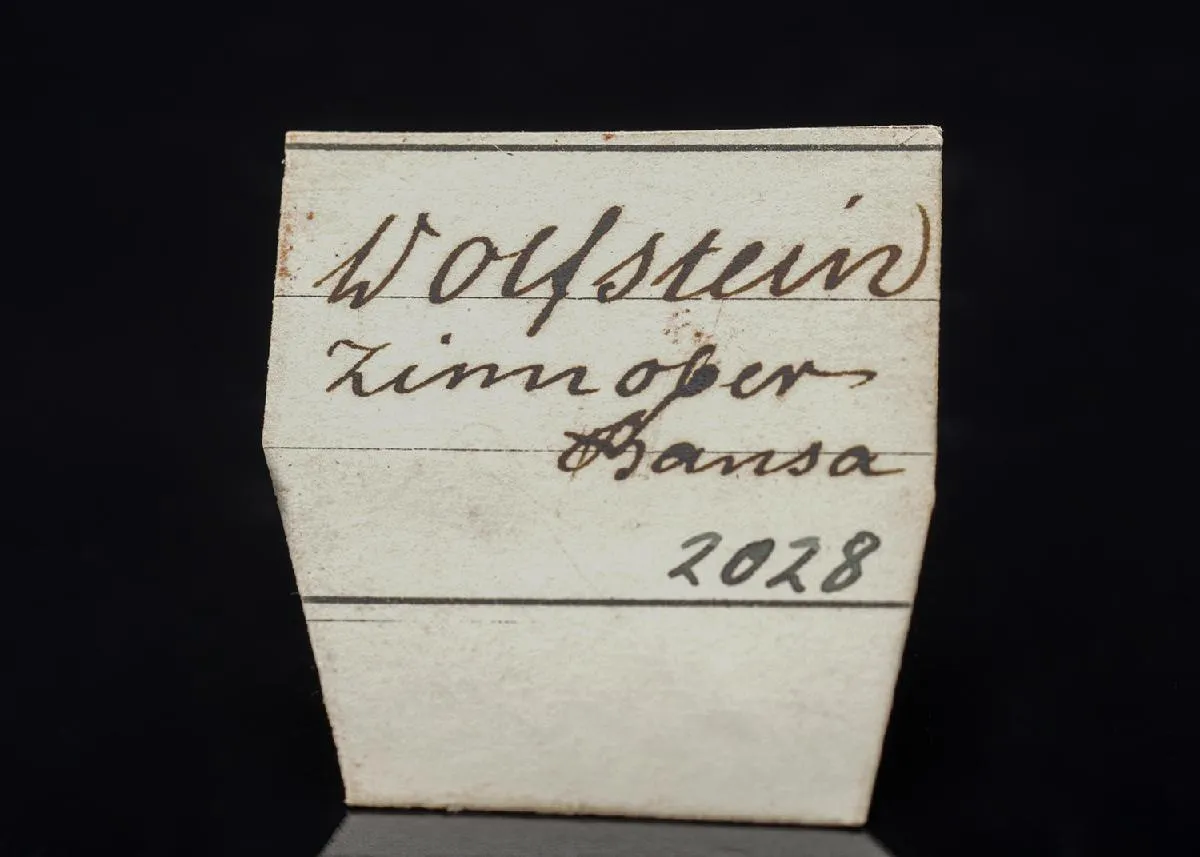 Wolfstein
Zinnober
Bansa
2028